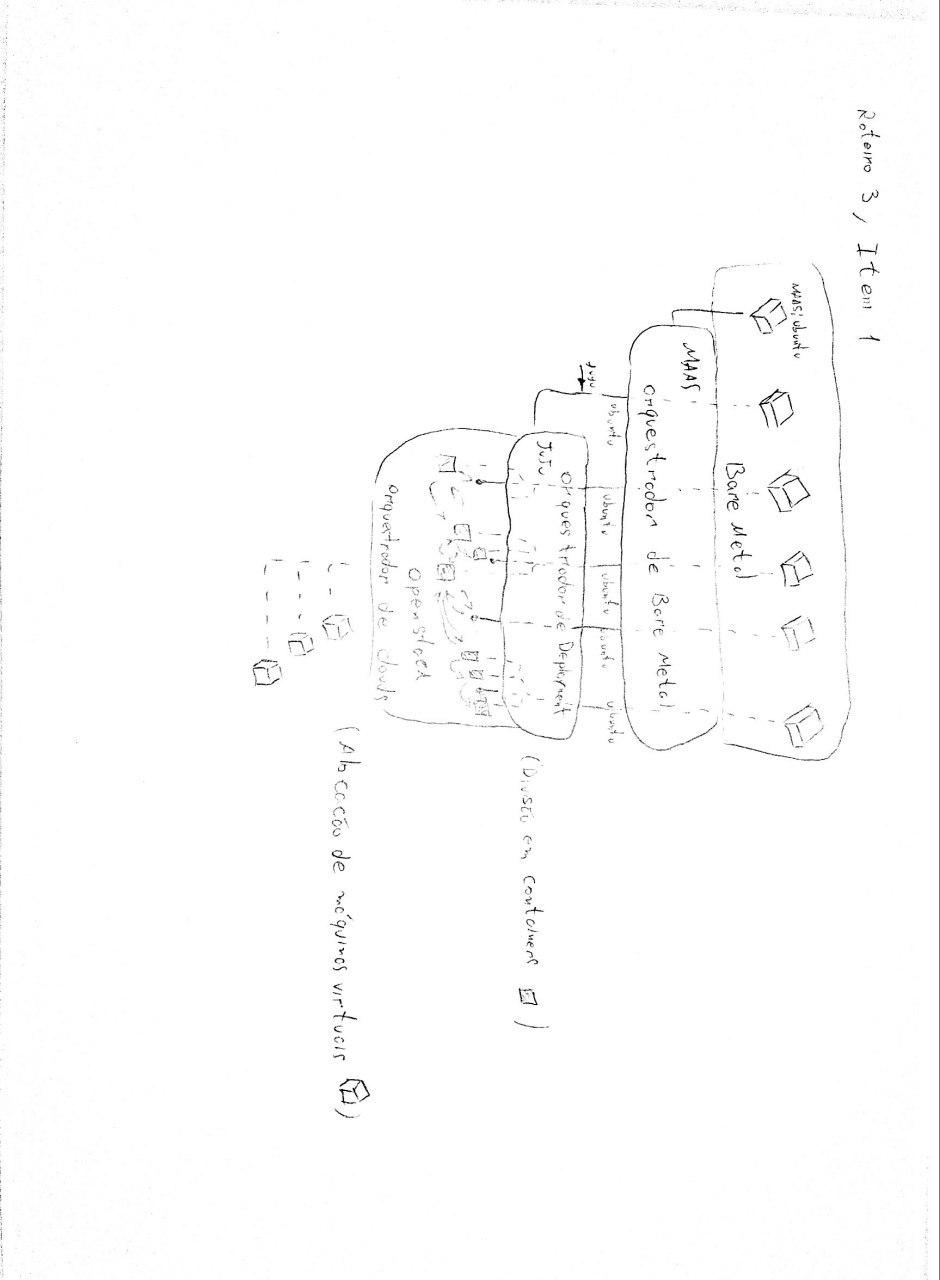 Roteiro 3, Item 1
MAAS: ubuntu
Bare Metal
MAAS
orquestrador de Bare Metal
juju
ubuntu
ubuntu
ubuntu
ubuntu
ubuntu
JUJU
orquestrador de Deployment
(Divisão em containers )
openstack
orquestrador de clouds
(Alocação de máquinas virtuais )